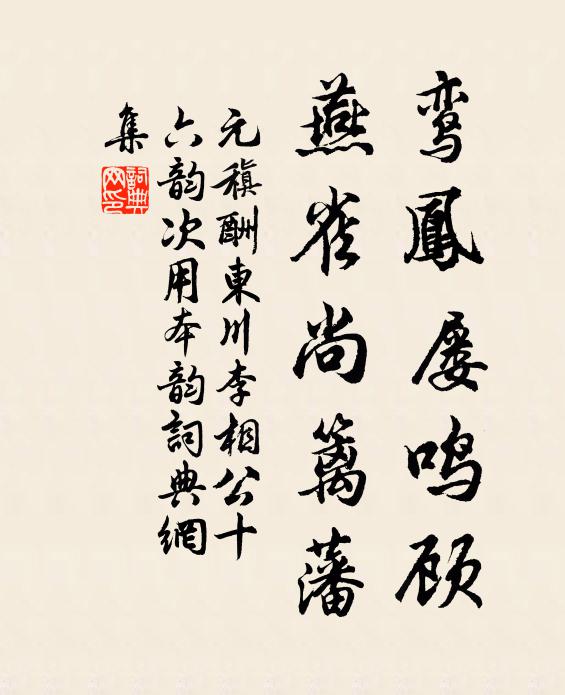 鸾鳳屡鸣顾
燕雀尚篱藩
元稹酬東川李相公十
六韵次用本韵詞典網
集
詞典网印